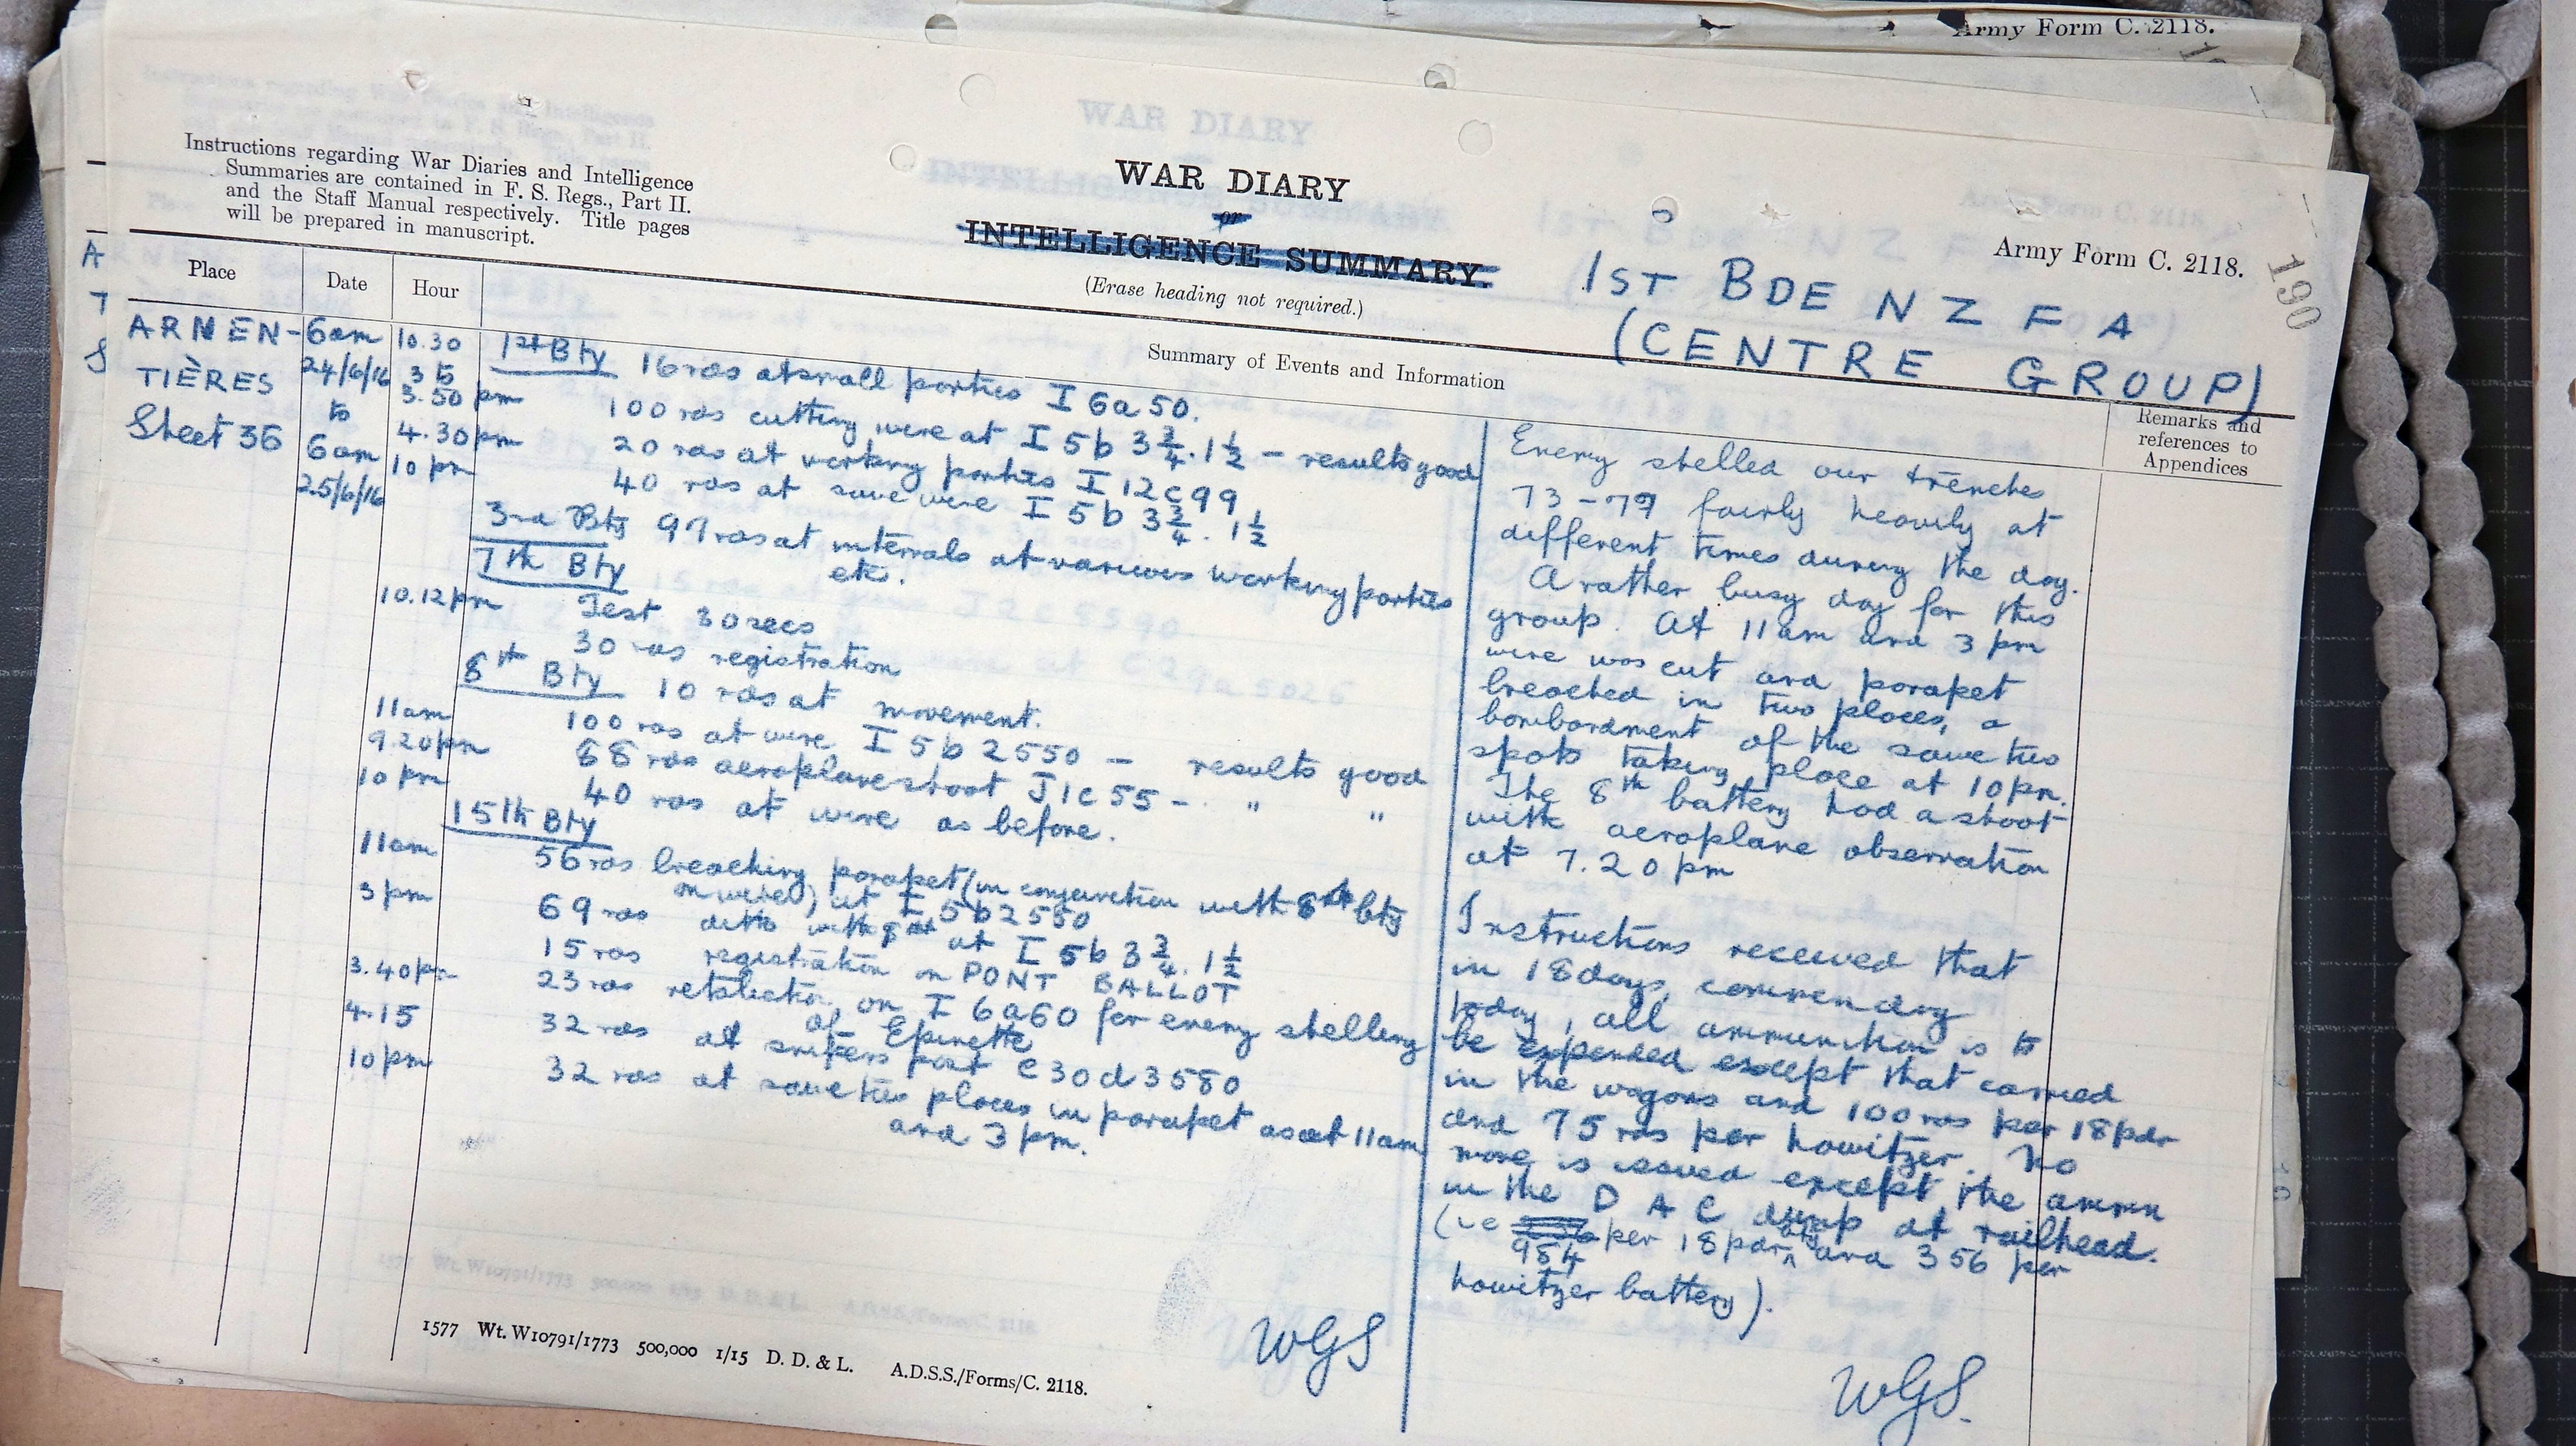 Army Form C. 2118.
Instructions regarding War Diaries and Intelligence
Summaries are contained in F. S. Regs., Part II.
and the Staff Manual respectively. Title pages
will be prepared in manuscript.
WAR DIARY
or
INTELLIGENCE SUMMARY.
(Erase heading not required.)
Army Form C. 2118.
190
1ST BDE N Z F A
(CENTRE GROUP)
Place
Date
Hour
Summary of Events and Information
Remarks and
references to
Appendices
ARMEN-
TIÈRES
Sheet 36
6am
24/6/16
to
6am
25/6/16
10.30 1st Bty 16 rds at small parties I 6a 50.
3 to
3.50 pm 100 rds cutting wire at I 5 b 3 3/4. 1 1/2 - results good
4.30 pm 20 rds at working parties I 12 c 99
10 pm 40 rds at same wire I 5 b 3 3/4. 1 1/2
3rd Bty 97 rds at intervals at various working parties
etc.
7th Bty
10.12 pm Test 30 secs
30 rds registration
8th Bty 10 rds at movement.
11am 100 rds at wire I 5 b 2550 - results good
9.20pm 88 rds aeroplane shoot J 1 c 55 - " "
10 pm 40 rds at wire as before.
15th Bty
11am 56 rds breaching parapet (in conjunction with 8th bty
on wire) at I 5 b 2550
3 pm 69 rds ditto with at I 5 b 3 3/4. 1 1/2
15 rds registration on PONT BALLOT
3.40pm 23 rds retaliation on I 6 a 60 for enemy shelling
of Epinette
4.15 32 rds at snipers post C 30 d 3580
10 pm 32 rds at same two places in parapet as at 11am
and 3 pm.
WGS
Enemy shelled our trenches
73 - 79 fairly heavily at
different times during the day.
A rather busy day for this
group. At 11am and 3 pm
wire was cut and parapet
breached in two places, a
bombardment of the same two
spots taking place at 10pm.
The 8th battery had a shoot
with aeroplane observation
at 7.20 pm
Instructions received that
in 18 days, commencing
today, all ammunition is to
be expended except that carried
in the wagons and 100 rds per 18pdr
and 75 rds per howitzer. No
more is issued except the ammn
in the D A C dump at railhead.
(ie 984 per 18pdr bty and 356 per
howitzer battery).
WGS.
1577 Wt. W10791/1773 500,000 1/15 D. D. & L. A.D.S.S./Forms/C. 2118.